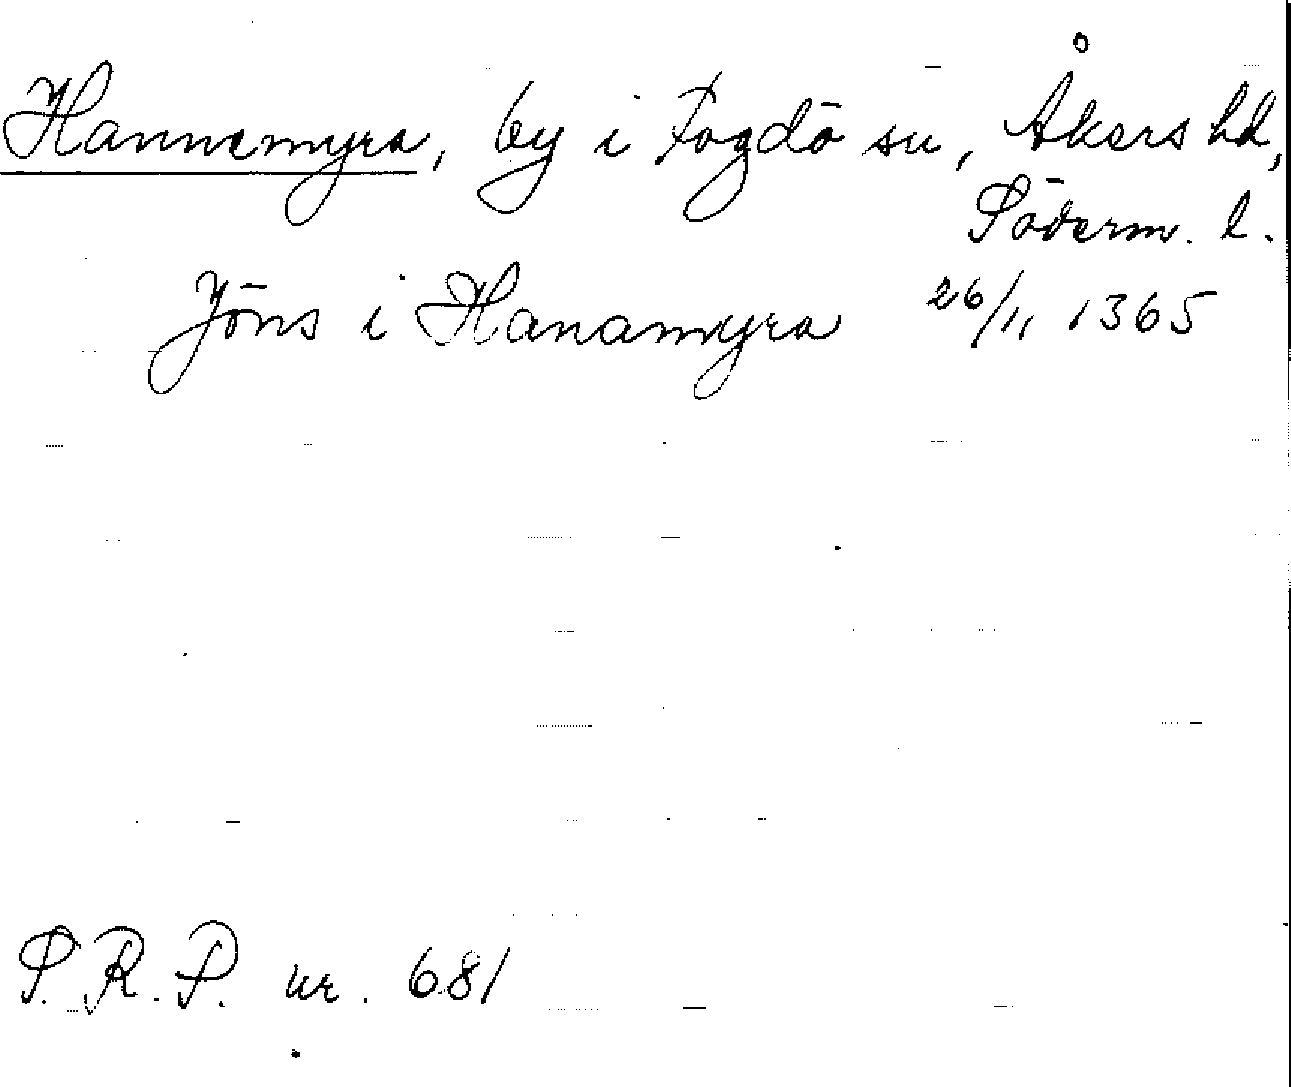 Hannemyra, by i Fogdö sn, Åkers hd,
Söderm. l.
Jöns i Hanamyra 26/11 1365
S.R.P. nr. 681